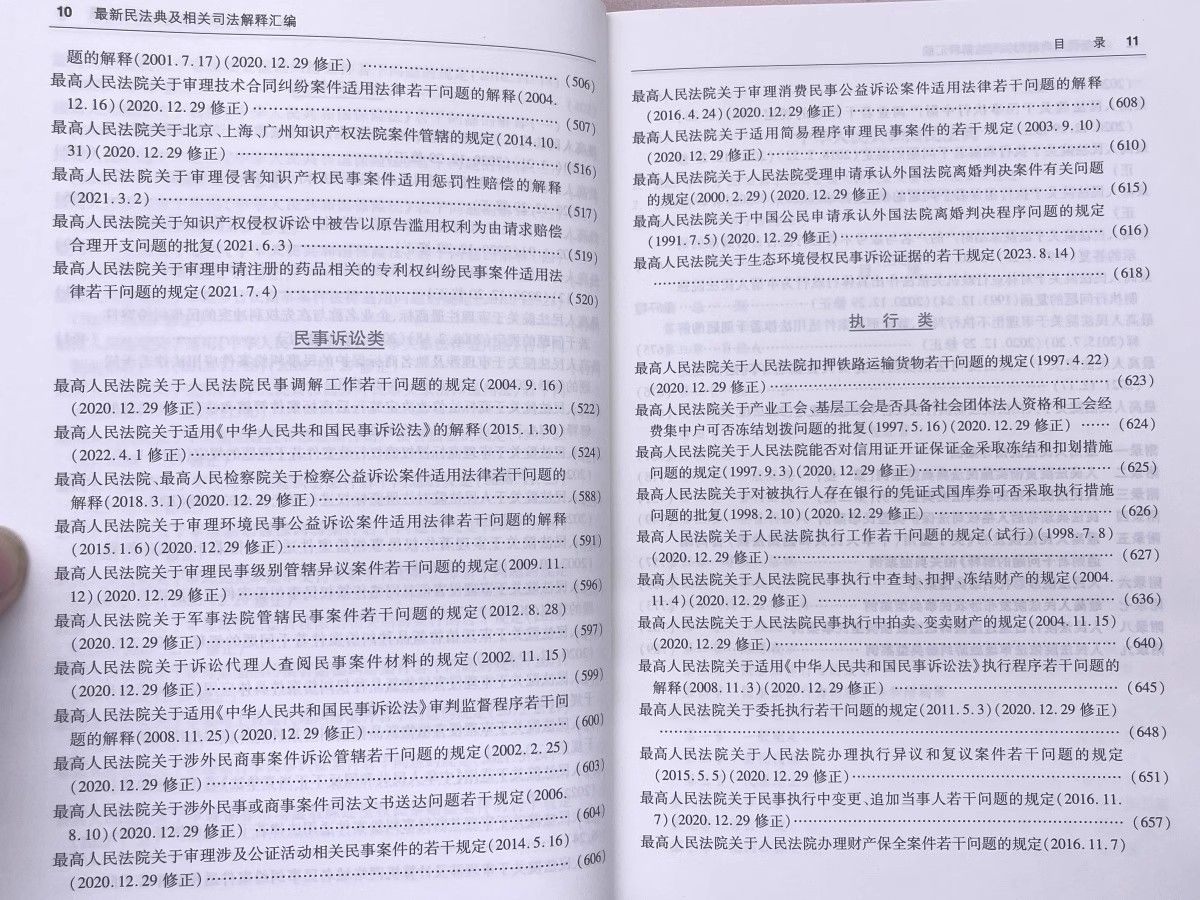 10 最新民法典及相关司法解释汇编
题的解释(2001.7.17)(2020.12.29 修正) …… (506)
最高人民法院关于审理技术合同纠纷案件适用法律若干问题的解释(2004.
12.16)(2020.12.29 修正) …… (507)
最高人民法院关于北京、上海、广州知识产权法院案件管辖的规定(2014.10.
31)(2020.12.29 修正) …… (516)
最高人民法院关于审理侵害知识产权民事案件适用惩罚性赔偿的解释
(2021.3.2) …… (517)
最高人民法院关于知识产权侵权诉讼中被告以原告滥用权利为由请求赔偿
合理开支问题的批复(2021.6.3) …… (519)
最高人民法院关于审理申请注册的药品相关的专利权纠纷民事案件适用法
律若干问题的规定(2021.7.4) …… (520)
民事诉讼类
最高人民法院关于人民法院民事调解工作若干问题的规定(2004.9.16)
(2020.12.29 修正) …… (522)
最高人民法院关于适用《中华人民共和国民事诉讼法》的解释(2015.1.30)
(2022.4.1 修正) …… (524)
最高人民法院、最高人民检察院关于检察公益诉讼案件适用法律若干问题的
解释(2018.3.1)(2020.12.29 修正) …… (588)
最高人民法院关于审理环境民事公益诉讼案件适用法律若干问题的解释
(2015.1.6)(2020.12.29 修正) …… (591)
最高人民法院关于审理民事级别管辖异议案件若干问题的规定(2009.11.
12)(2020.12.29 修正) …… (596)
最高人民法院关于军事法院管辖民事案件若干问题的规定(2012.8.28)
(2020.12.29 修正) …… (597)
最高人民法院关于诉讼代理人查阅民事案件材料的规定(2002.11.15)
(2020.12.29 修正) …… (599)
最高人民法院关于适用《中华人民共和国民事诉讼法》审判监督程序若干问
题的解释(2008.11.25)(2020.12.29 修正) …… (600)
最高人民法院关于涉外民商事案件诉讼管辖若干问题的规定(2002.2.25)
(2020.12.29 修正) …… (603)
最高人民法院关于涉外民事或商事案件司法文书送达问题若干规定(2006.
8.10)(2020.12.29 修正) …… (604)
最高人民法院关于审理涉及公证活动相关民事案件的若干规定(2014.5.16)
(2020.12.29 修正) …… (606)
目 录 11
最高人民法院关于审理消费民事公益诉讼案件适用法律若干问题的解释
(2016.4.24)(2020.12.29 修正) …… (608)
最高人民法院关于适用简易程序审理民事案件的若干规定(2003.9.10)
(2020.12.29 修正) …… (610)
最高人民法院关于人民法院受理申请承认外国法院离婚判决案件有关问题
的规定(2000.2.29)(2020.12.29 修正) …… (615)
最高人民法院关于中国公民申请承认外国法院离婚判决程序问题的规定
(1991.7.5)(2020.12.29 修正) …… (616)
最高人民法院关于生态环境侵权民事诉讼证据的若干规定(2023.8.14)
…… (618)
执 行 类
最高人民法院关于人民法院扣押铁路运输货物若干问题的规定(1997.4.22)
(2020.12.29 修正) …… (623)
最高人民法院关于产业工会、基层工会是否具备社会团体法人资格和工会经
费集中户可否冻结划拨问题的批复(1997.5.16)(2020.12.29 修正) …… (624)
最高人民法院关于人民法院能否对信用证开证保证金采取冻结和扣划措施
问题的规定(1997.9.3)(2020.12.29 修正) …… (625)
最高人民法院关于对被执行人存在银行的凭证式国库券可否采取执行措施
问题的批复(1998.2.10)(2020.12.29 修正) …… (626)
最高人民法院关于人民法院执行工作若干问题的规定(试行)(1998.7.8)
(2020.12.29 修正) …… (627)
最高人民法院关于人民法院民事执行中查封、扣押、冻结财产的规定(2004.
11.4)(2020.12.29 修正) …… (636)
最高人民法院关于人民法院民事执行中拍卖、变卖财产的规定(2004.11.15)
(2020.12.29 修正) …… (640)
最高人民法院关于适用《中华人民共和国民事诉讼法》执行程序若干问题的
解释(2008.11.3)(2020.12.29 修正) …… (645)
最高人民法院关于委托执行若干问题的规定(2011.5.3)(2020.12.29 修正)
…… (648)
最高人民法院关于人民法院办理执行异议和复议案件若干问题的规定
(2015.5.5)(2020.12.29 修正) …… (651)
最高人民法院关于民事执行中变更、追加当事人若干问题的规定(2016.11.
7)(2020.12.29 修正) …… (657)
最高人民法院关于人民法院办理财产保全案件若干问题的规定(2016.11.7)